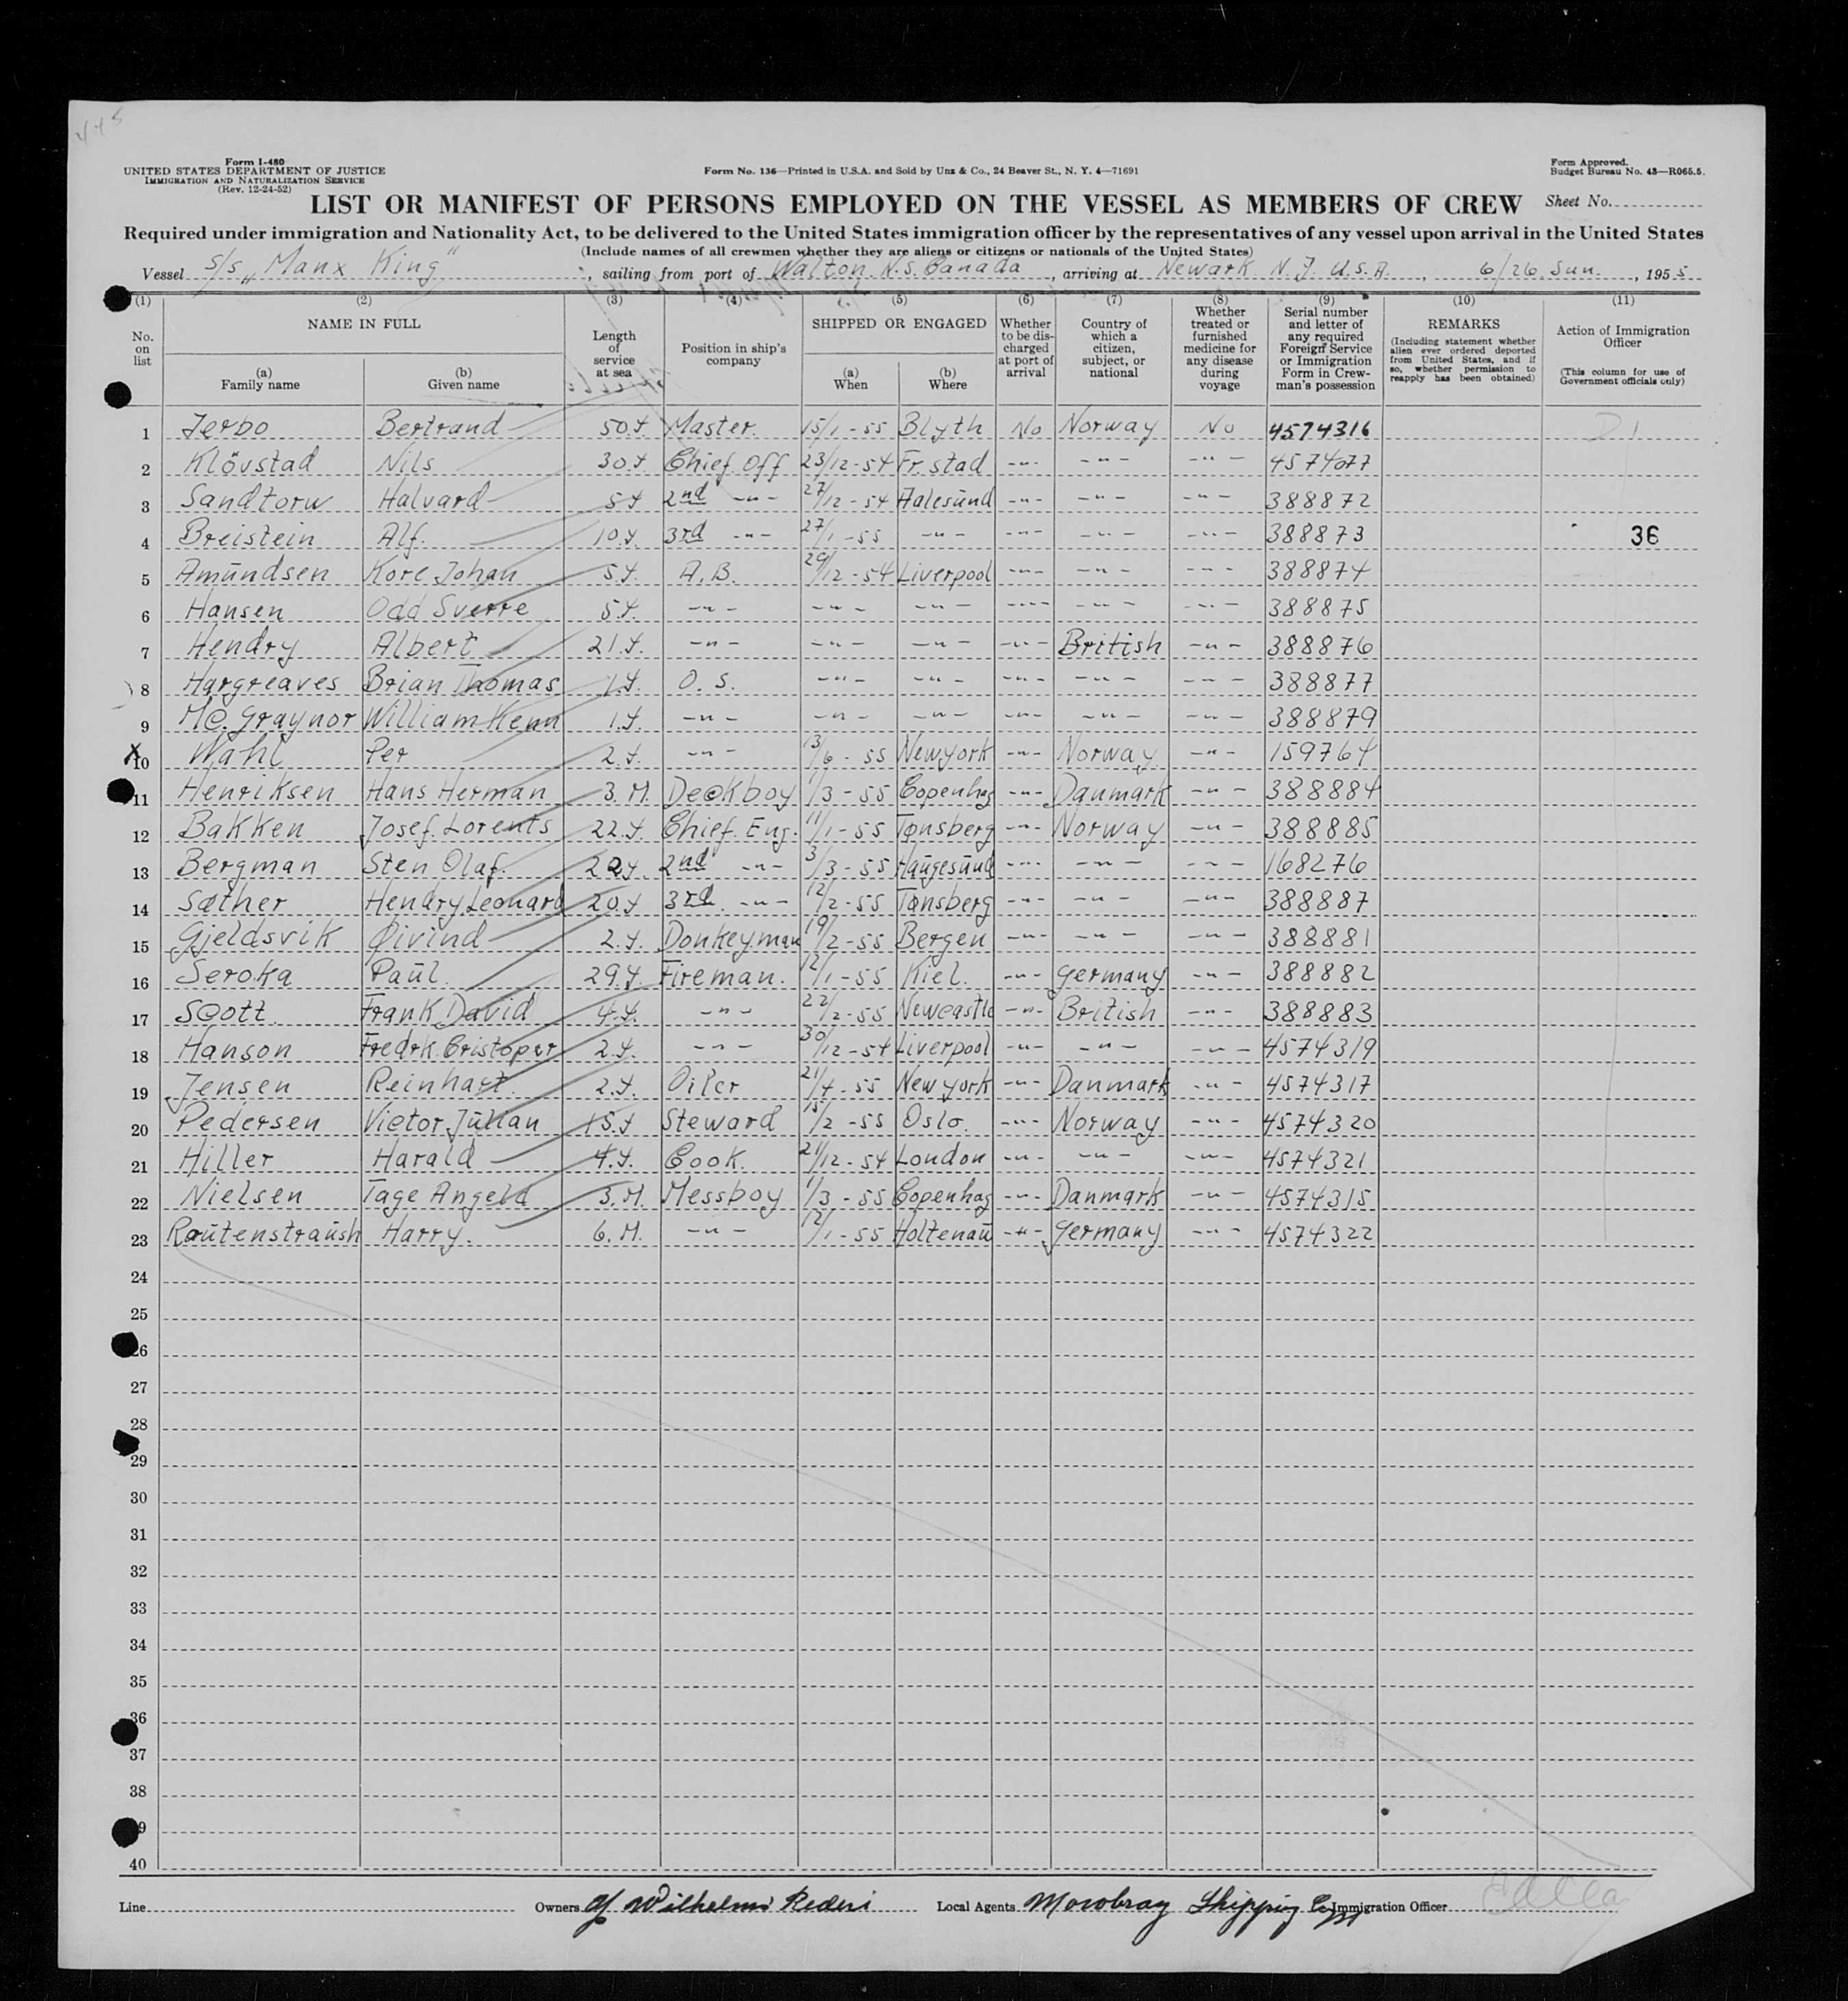 445
Form I-480
UNITED STATES DEPARTMENT OF JUSTICE
IMMIGRATION AND NATURALIZATION SERVICE
(Rev. 12-24-52)
Form No. 136—Printed in U.S.A. and Sold by Unz & Co., 24 Beaver St., N. Y. 4—71691
Form Approved.
Budget Bureau No. 43—R065.5.
LIST OR MANIFEST OF PERSONS EMPLOYED ON THE VESSEL AS MEMBERS OF CREW Sheet No.
Required under immigration and Nationality Act, to be delivered to the United States immigration officer by the representatives of any vessel upon arrival in the United States
(Include names of all crewmen whether they are aliens or citizens or nationals of the United States)
Vessel S/s „Manx King“, sailing from port of Walton. N.S. Canada, arriving at Newark N. J. U.S.A., 6/26. Sun., 1955
(1) (2) (3) (4) (5) (6) (7) (8) (9) (10) (11)
No. on list
NAME IN FULL
(a) Family name
(b) Given name
Length of service at sea
Position in ship's company
SHIPPED OR ENGAGED
(a) When
(b) Where
Whether to be discharged at port of arrival
Country of which a citizen, subject, or national
Whether treated or furnished medicine for any disease during voyage
Serial number and letter of any required Foreign Service or Immigration Form in Crewman's possession
REMARKS
(Including statement whether alien ever ordered deported from United States, and if so, whether permission to reapply has been obtained)
Action of Immigration Officer
(This column for use of Government officials only)
1 Jerbo Bertrand 50.Y Master. 15/1-55 Blyth No Norway No 4574316 D1
2 Klövstad Nils 30.Y Chief. Off 23/12-54 Fr.stad -"- -"- -"- 4574077
3 Sandtorw Halvard 5Y 2nd -"- 27/12-54 Aalesund -"- -"- -"- 388872
4 Breistein Alf. 10.Y. 3rd -"- 27/1-55 -"- -"- -"- -"- 388873 36
5 Amundsen Kore Johan 5.Y. A.B. 29/12-54 Liverpool -"- -"- -"- 388874
6 Hansen Odd Sverre 5.Y. -"- -"- -"- -"- -"- -"- 388875
7 Hendry Albert 21.Y. -"- -"- -"- -"- British -"- 388876
8 Hargreaves Brian Thomas 1.Y. O. S. -"- -"- -"- -"- -"- 388877
9 Mc.Graynor William Kenn 1.Y. -"- -"- -"- -"- -"- -"- 388879
X 10 Wahl Per 2.Y. -"- 13/6-55 Newyork -"- Norway -"- 159764
11 Henriksen Hans Herman 3.M. Deckboy 1/3-55 Copenhag -"- Danmark -"- 388884
12 Bakken Josef.Lorents 22.Y. Chief. Eng. 11/1-55 Tønsberg -"- Norway -"- 388885
13 Bergman Sten Olaf. 22Y. 2nd -"- 3/3-55 Haugesund -"- -"- -"- 168276
14 Sæther Hendry Leonard 20.Y 3rd. -"- 12/2-55 Tønsberg -"- -"- -"- 388887
15 Gjeldsvik Øivind 2.Y. Donkeyman 19/2-55 Bergen -"- -"- -"- 388881
16 Seroka Paul. 29Y. Fireman. 12/1-55 Kiel. -"- Germany -"- 388882
17 Scott. Frank David 4.Y. -"- 22/2-55 Newcastle -"- British -"- 388883
18 Hanson Fredrk.Cristoper 2.Y. -"- 30/12-54 Liverpool -"- -"- -"- 4574319
19 Jensen Reinhart. 2.Y. Oiler 21/4-55 Newyork -"- Danmark -"- 4574317
20 Pedersen Victor Julian 15.Y Steward 15/2-55 Oslo. -"- Norway -"- 4574320
21 Hiller Harald 4.Y. Cook. 21/12-54 London -"- -"- -"- 4574321
22 Nielsen Tage Angela 3.M. Messboy 1/3-55 Copenhag -"- Danmark -"- 4574315
23 Rautenstraush Harry. 6.M. -"- 12/1-55 Holtenau -"- Germany -"- 4574322
24
25
26
27
28
29
30
31
32
33
34
35
36
37
38
39
40
Line Owners Wilhelms Rederi Local Agents Mowbray Shipping Immigration Officer